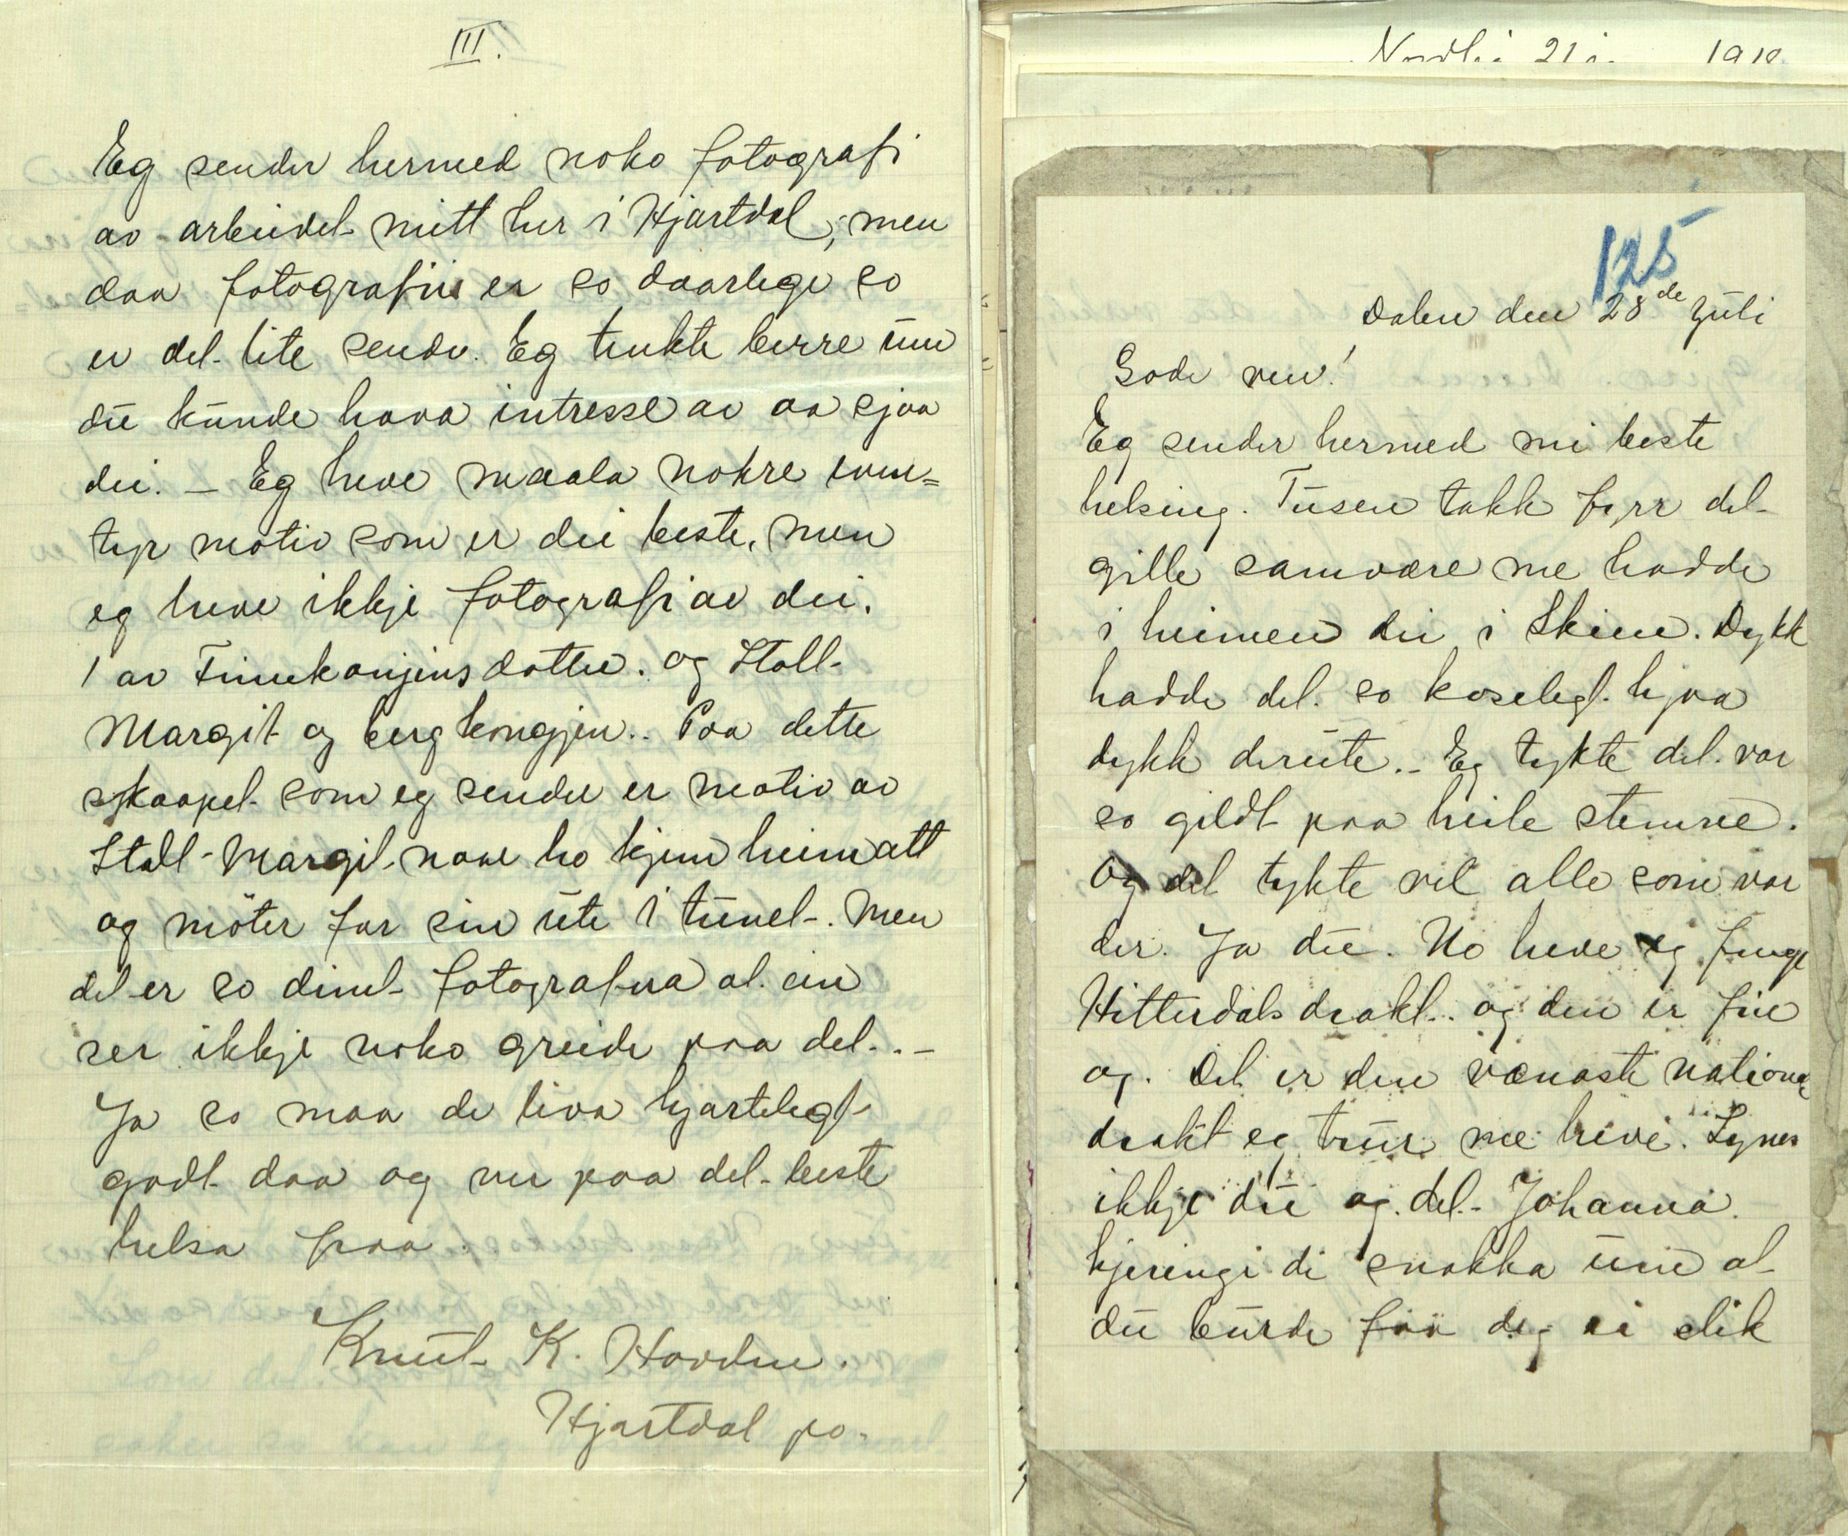 III.
Eg sender hermed noko fotografi
av arbeidet mitt her i Hjartdal, men
daa fotografii er so daarlege so
er det lite sendv. Eg tenkte berre um
du kunde hava intresse av aa sjaa
dei. – Eg heve maala nokre even=
tyr motiv som er dei beste, men
eg heve ikkje fotografi av dei.
1 av Finnekongjens dotter. og Stall-
Margit og bergkongjen.. Paa dette
skaapet som eg sender er motiv av
Stall-Margit naar ho kjem heimatt
og möter far sin ute i tunet-. Men
det er so dimt fotografera at ein
ser ikkje noko greide paa det. . –
Ja so maa de liva hjartelegt
godt daa og ver paa det beste
helsa fraa .
Knut K. Hovden.
Hjartdal po.
Nordli 21 1910
125
Dalen den 28de Juli
Gode ven!
Eg sender hermed mi beste
helsing. Tusen takk fyrr det
gille samvære me hadde
i heimen din i Skien. Dykk
hadde det so koselegt hjaa
dykk derute. – Eg tykte det var
so gildt paa heile stemne.
Og det tykte vel alle som var
der. Ja du. No heve eg fenge
Hitterdals drakt.. og den er fin
og. Det er den vænaste national
drakt eg trur me heve. Synes
ikkje du og det- Johanna.
kjeringi di snakka um at
du burde faa deg ei slik